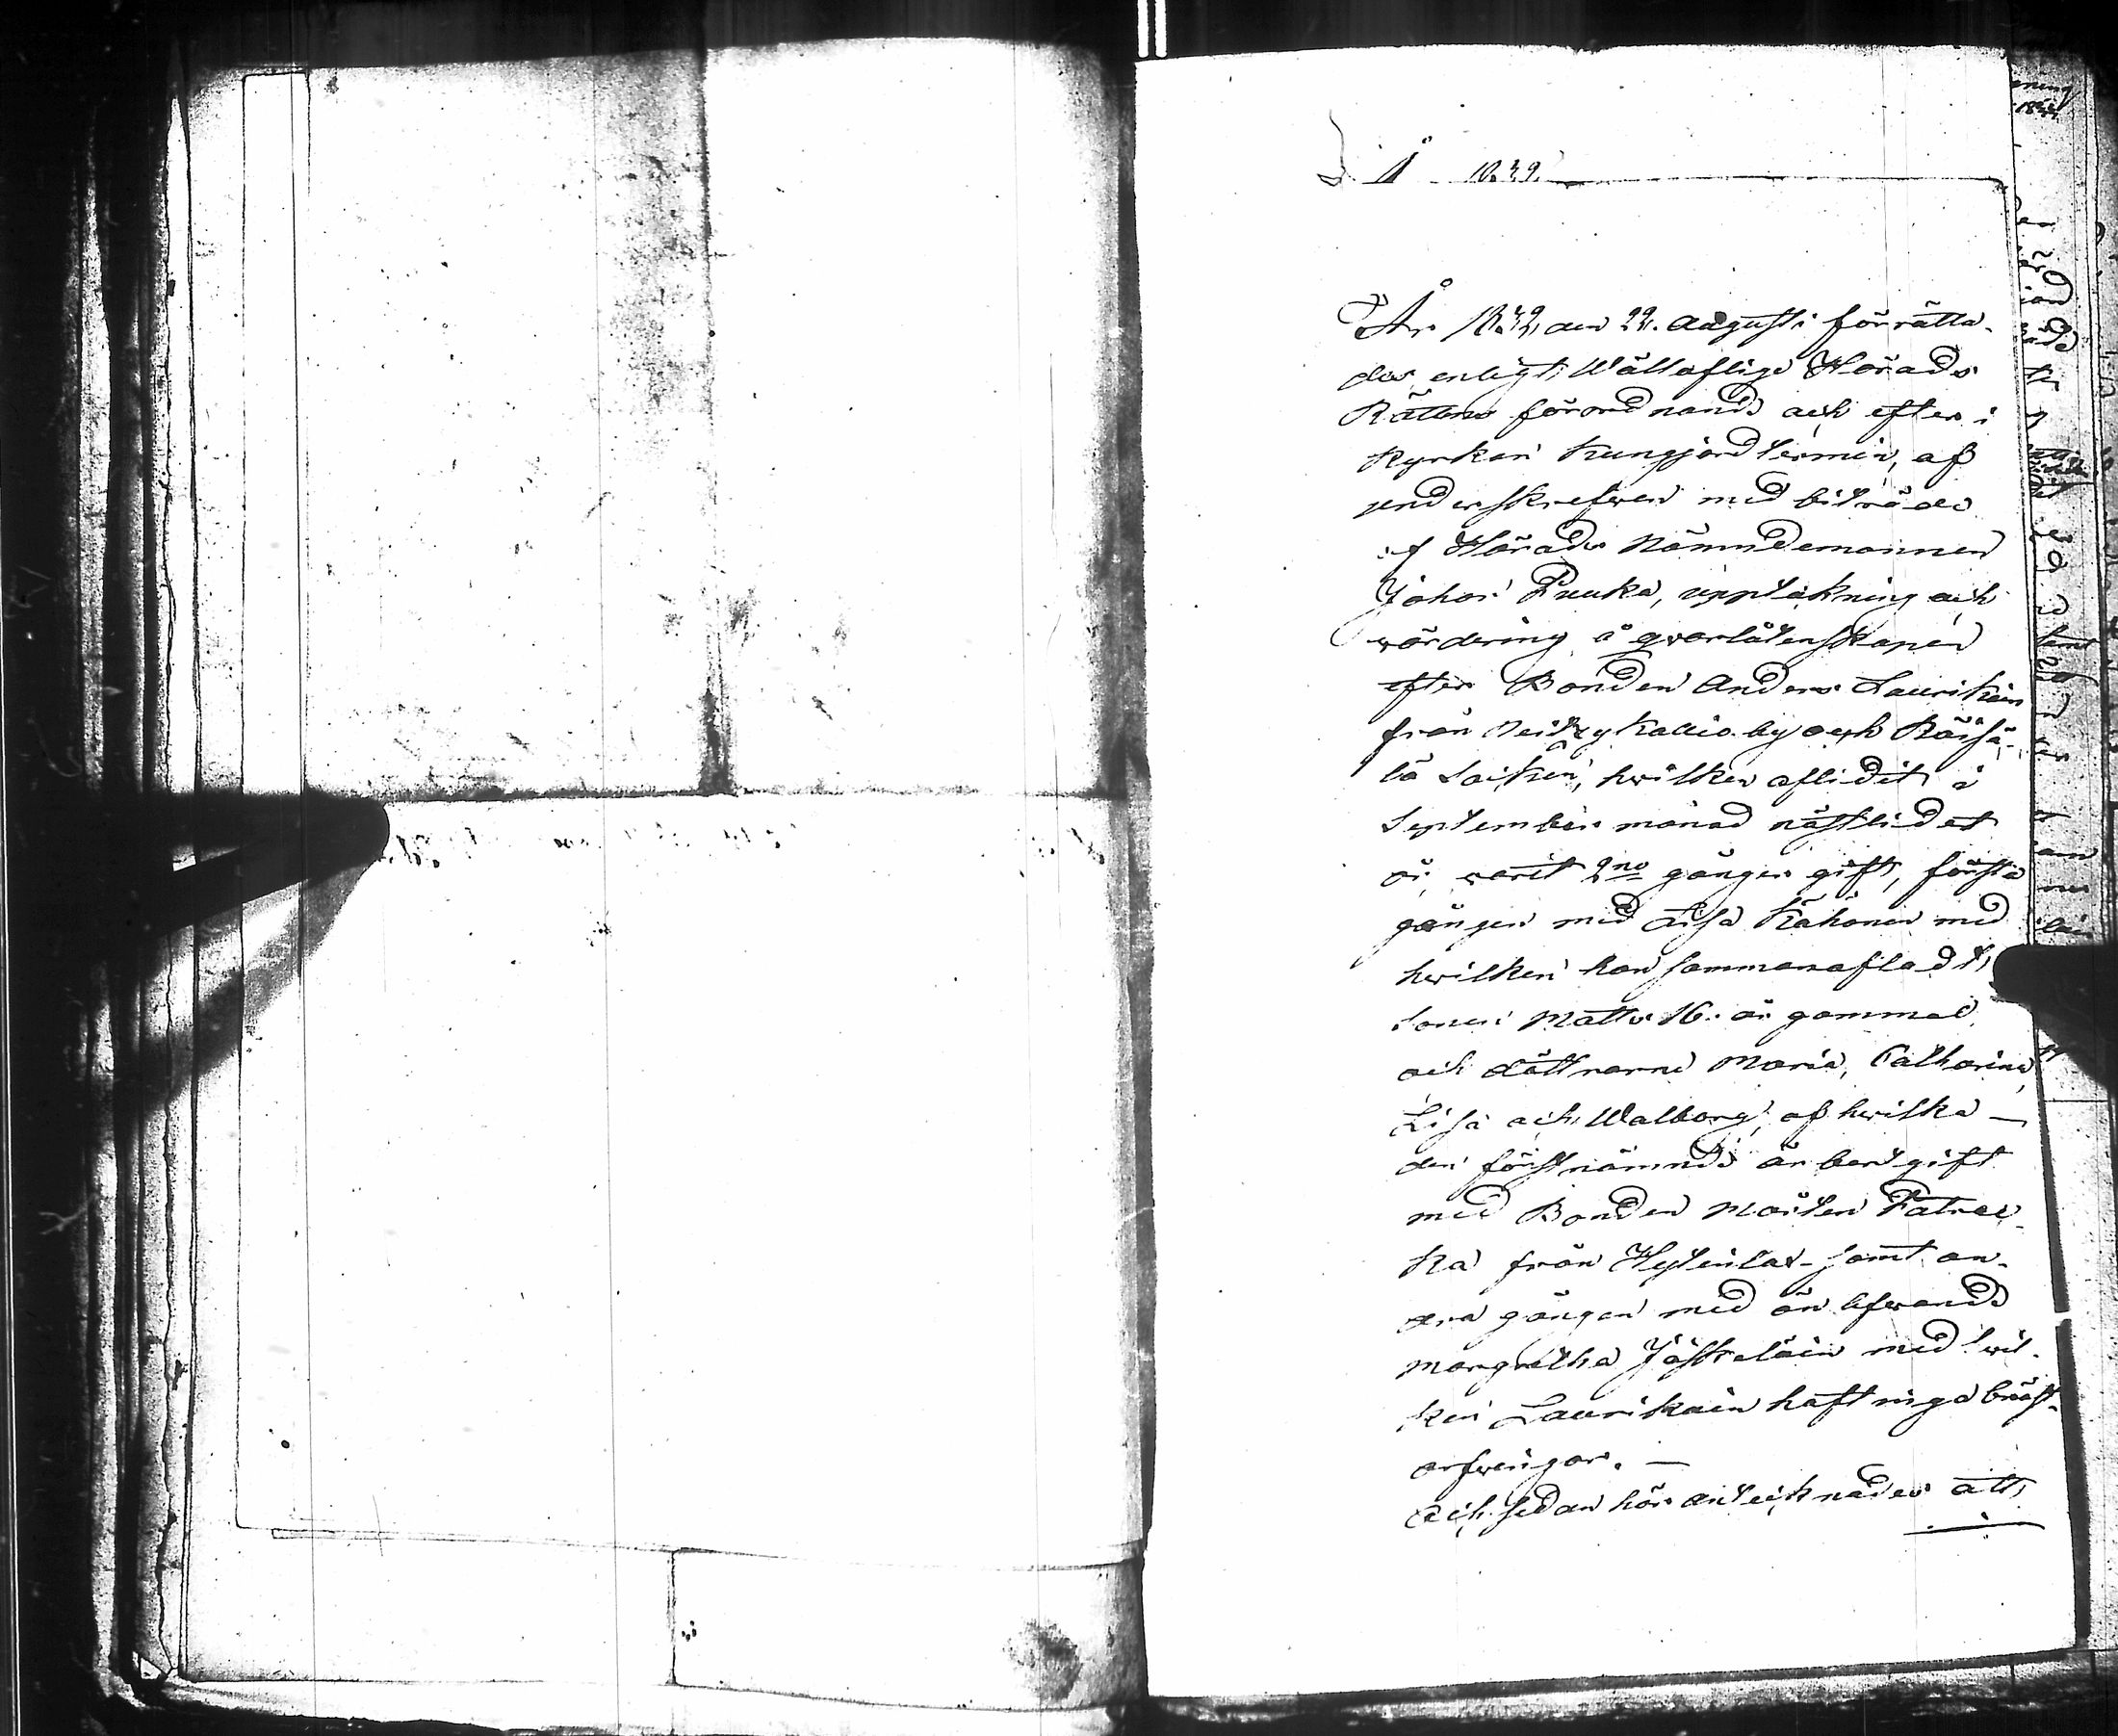 Å 1832.
År 1832 den 22. Augusti förrätta-
des enligt Wällaflige Härads
Rättens förordnande och efter i
Kyrkan kungjord termin, af
underskrefven med biträde
af Härads Nämndemannen
Johan Puuka, uppteckning och
wärdering å qvarlåtenskapen
efter Bonden Anders Laurikain
från kallio by och Räisä-
lä Socken, hwilken aflidit i
September månad nästlidet
år, warit 2ne gånger gift, första
gången med Lisa Kähönen med
hwilken han sammanafladt
sonen Matts 16. år gammal
och döttrarne Maria, Catharina,
Lisa och Walborg, af hwilka —
den förstnämnde är bortgift
med Bonden Mårten Patree-
ka från Hytinlax samt an-
dra gången med än lefwande
Margretha Jäskeläin med hwil-
ken Laurikain haft inga bröst-
arfwingar. —
Och sedan här antecknades att